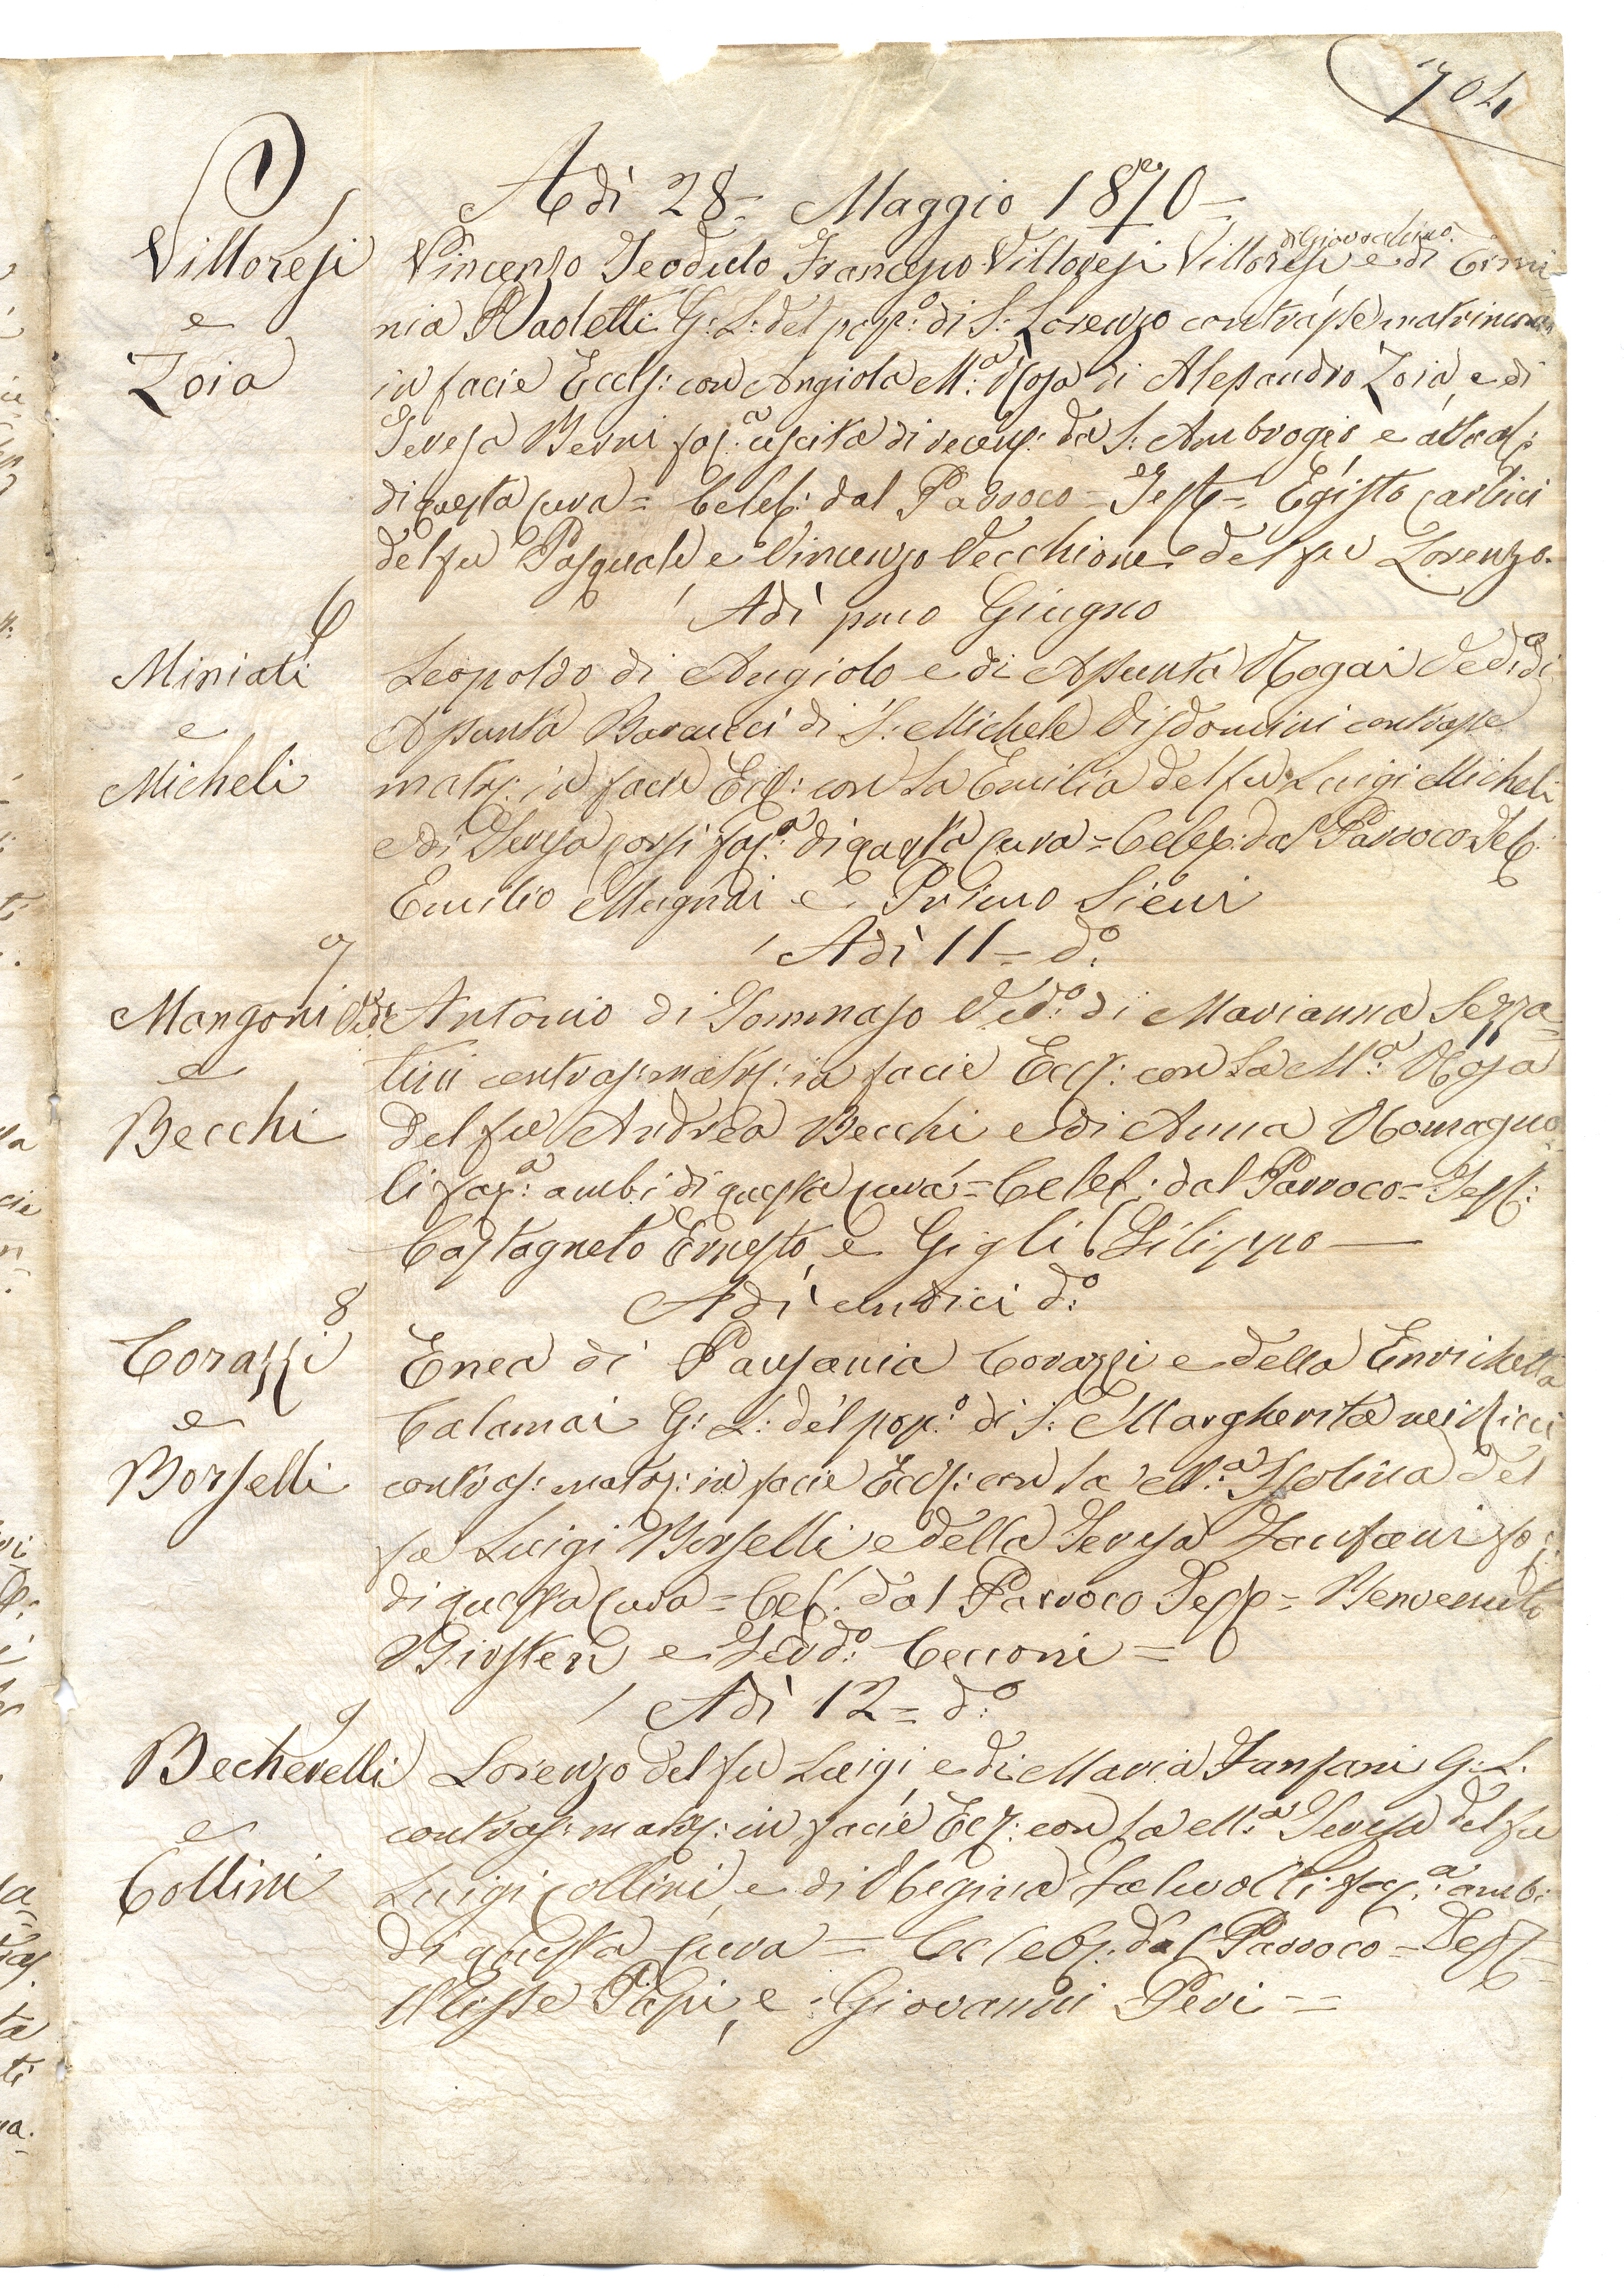 704
Adì 28= Maggio 1870=
Villoresi e Zoia
Vincenzo Teodulo Francesco Villoresi Villoresi di Giovacchino e di Ermi-
nia Paoletti G: L: del pop:º di S: Lorenzo contrasse matrimon
in facie Eccls: con Angiola M:ª Rosa di Alessandro Zoia, e di
Teresa Berni faª uscita di da S: Ambrogio e
di questa Cura = Celeb: dal Parroco = Test = Egisto Carlini
del fu Pasquale e Vincenzo Vecchione del fu Lorenzo.
Adì pmo Giugno
6
Miniati e Micheli
Leopoldo di Angiolo e di Assunta Nogai Ved:º di
Assunta Baraucci di S: Michele Visdomini contrasse
matr: in facie Eccl: con la Emilia del fu Luigi Micheli
e di Teresa Corsi faª di questa Cura = Celeb: dal Parroco Test:
Emilio Mugnai e Primo Sieni
Adì 11= dº:
7
Mangoni e Becchi
Antonio di Tommaso Vedº: di Marianna Sezza=
tini contras: matr: in facie Eccl: con la M:ª Rosa
del fu Andrea Becchi e di Anna Romagno
li faª: ambi di questa Cura = Celeb: dal Parroco = Test:
Castagneto Ernesto, e Gigli Filippo
Adì undici dº:
8
Corazzi e Borselli
Enea di Pausania Corazzi e della Enrichetta
Calamai G: L: del pop:º di S: Margherita nei Ricci
contras: matr: in facie Eccl: con la M:ª Isolina del
fu Luigi Borselli e della Teresa Fanfani
di questa Cura = Cel: dal Parroco Test = Benvenuto
e Ferdº: Cecconi =
Adì 12= dº:
9
Becherelli e Collini
Lorenzo del fu Luigi e di Maria Fanfani G: L.
contras: matr: in facie Ecl: con la M:ª Teresa del fu
Luigi Collini, e di Regina Salvolti faª: ambi
di questa Cura = Celeb: dal Parroco = Test=
Ulisse Papi, e Giovanni Peri =